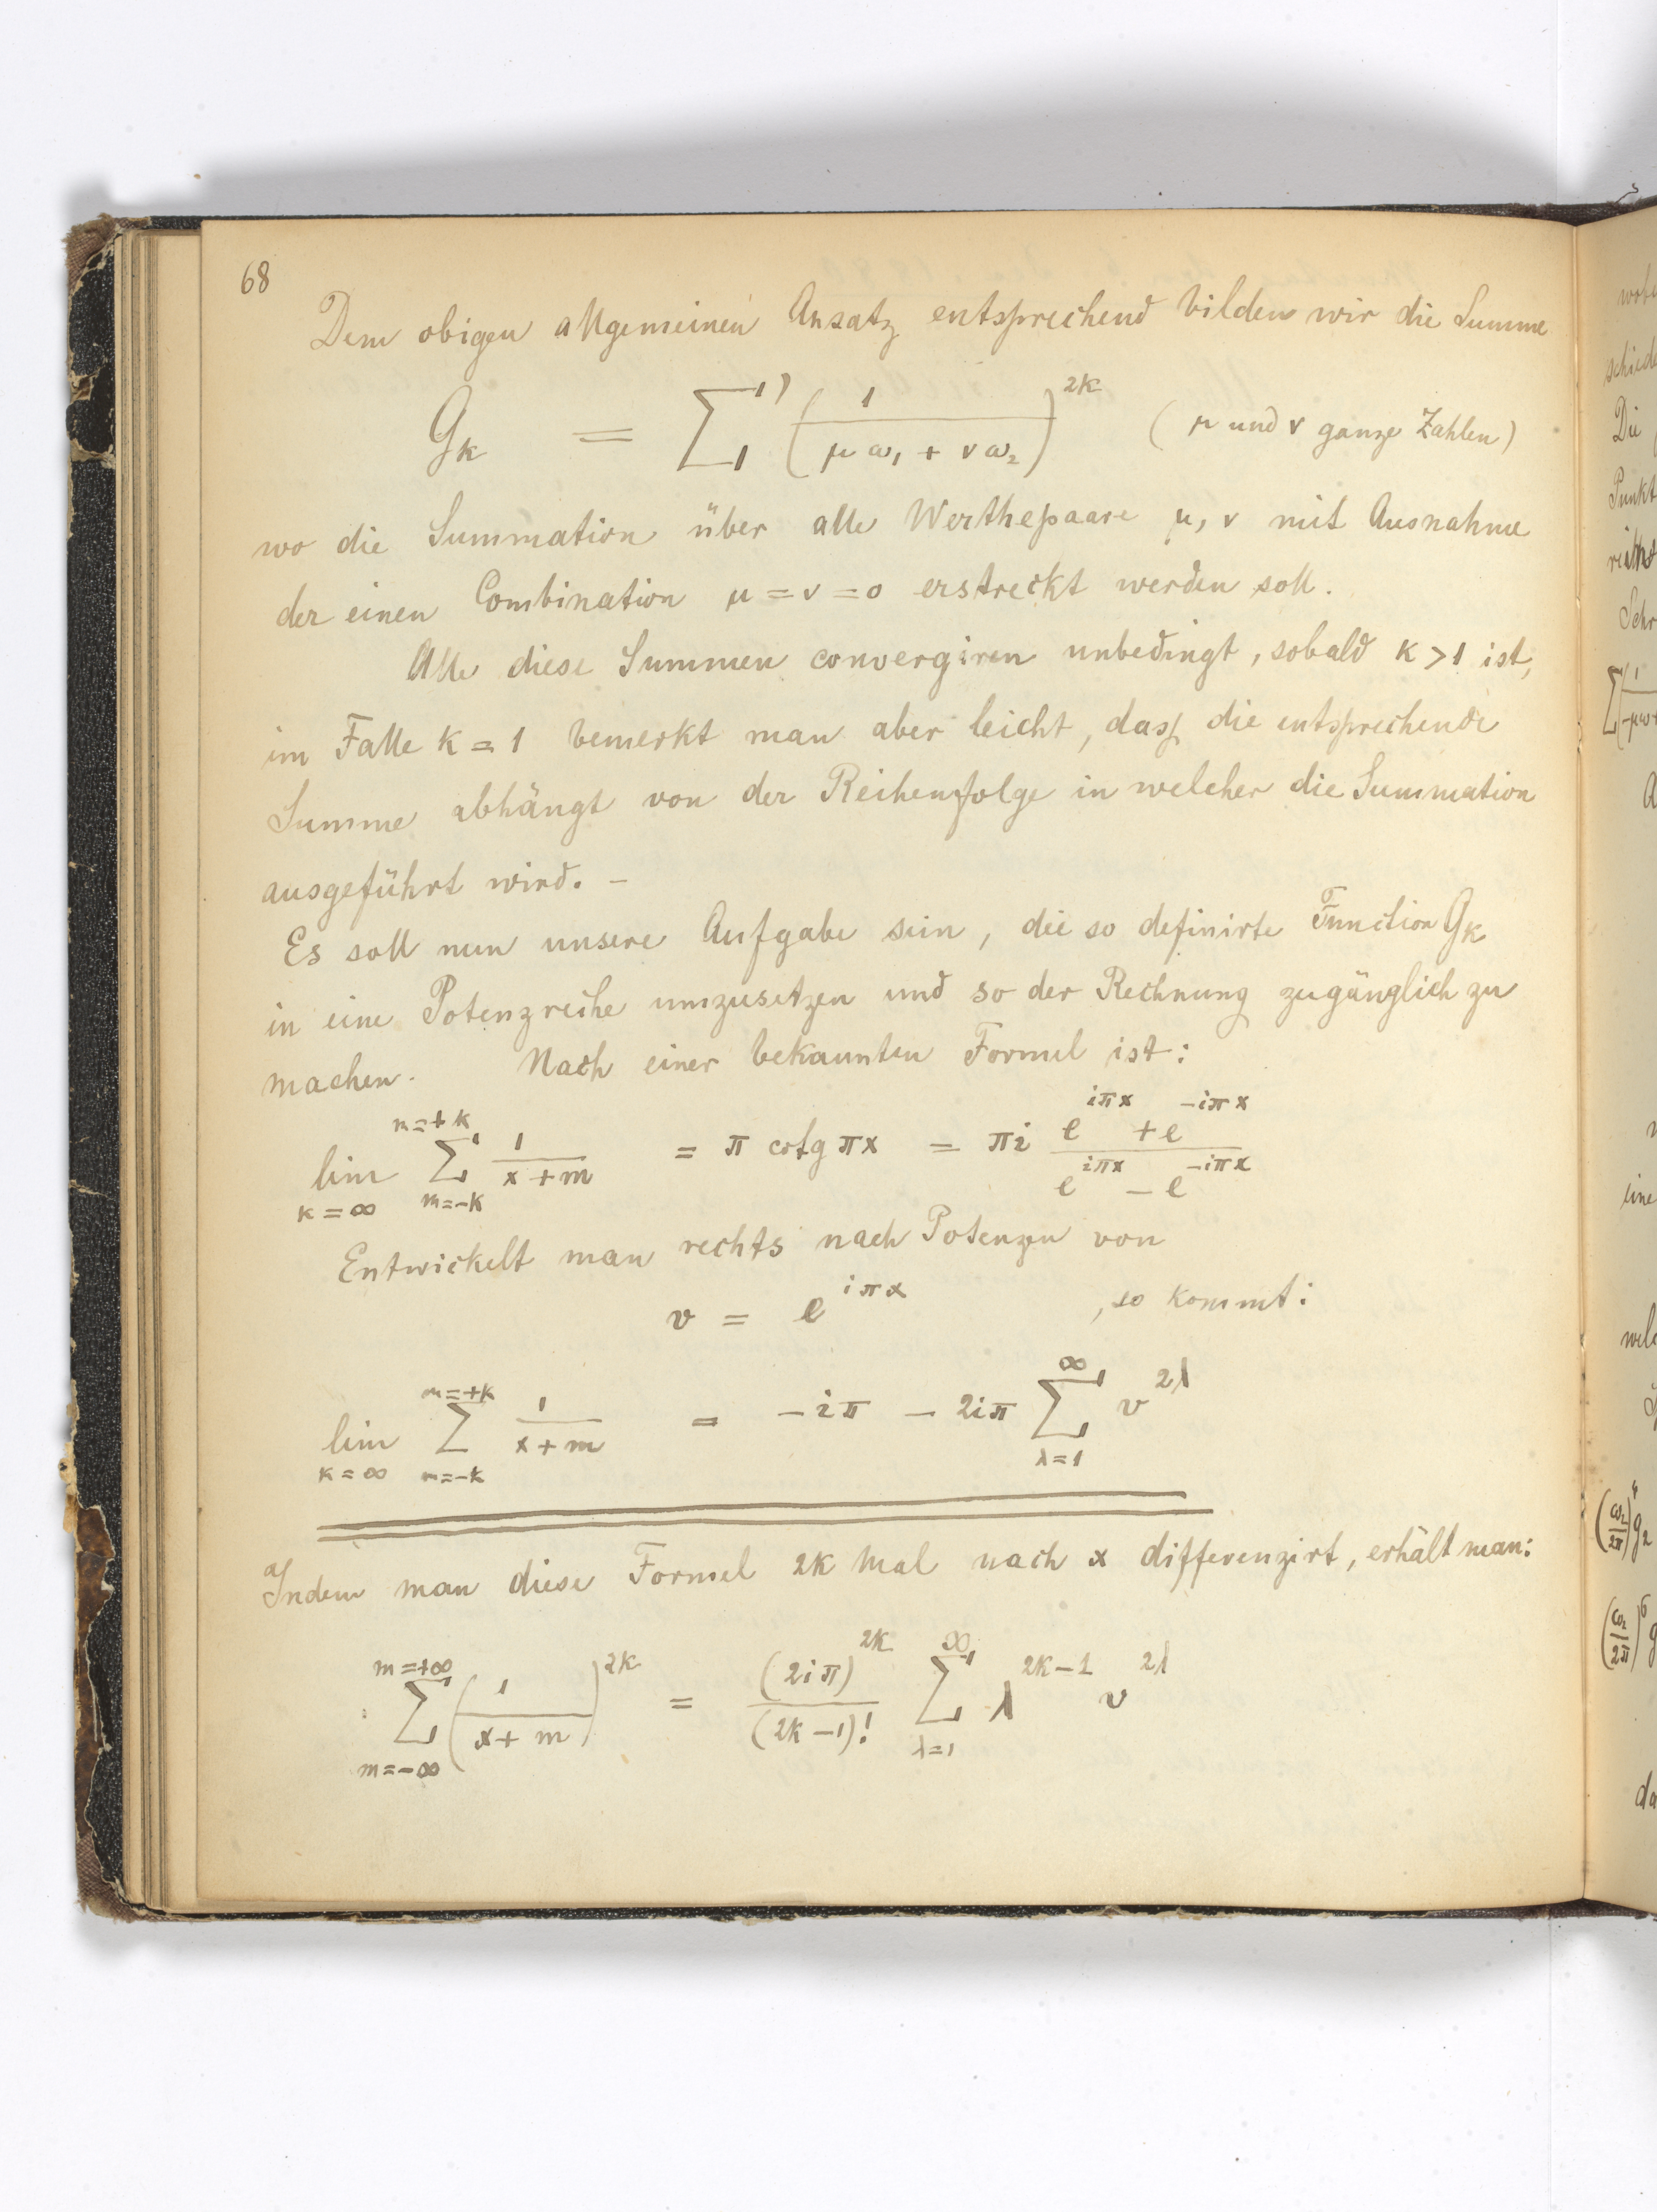 68
Dem obigen allgemeinen Ansatz entsprechend bilden wir die Summe
G_k = ∑' (1/(μω₁ + νω₂))^{2k} (μ und ν ganze Zahlen)
wo die Summation über alle Werthepaare μ, ν mit Ausnahme
der einen Combination μ = ν = 0 erstreckt werden soll.
Alle diese Summen convergiren unbedingt, sobald k > 1 ist,
im Falle k = 1 bemerkt man aber leicht, dass die entsprechende
Summe abhängt von der Reihenfolge in welcher die Summation
ausgeführt wird. –
Es soll nun unsere Aufgabe sein, die so definirte Function G_k
in eine Potenzreihe umzusetzen und so der Rechnung zugänglich zu
machen. Nach einer bekannten Formel ist:
lim_{k=∞} ∑_{m=-k}^{m=+k} 1/(x+m) = π cotg πx = πi (e^{iπx} + e^{-iπx})/(e^{iπx} – e^{-iπx})
Entwickelt man rechts nach Potenzen von
v = e^{iπx}, so kommt:
lim_{k=∞} ∑_{m=-k}^{m=+k} 1/(x+m) = – iπ – 2iπ ∑_{λ=1}^{∞} v^{2λ}
Indem man diese Formel 2k Mal nach x differenzirt, erhält man:
∑_{m=-∞}^{m=+∞} (1/(x+m))^{2k} = (2iπ)^{2k}/(2k–1)! ∑_{λ=1}^{∞} λ^{2k–1} v^{2λ}
Die
Punkt